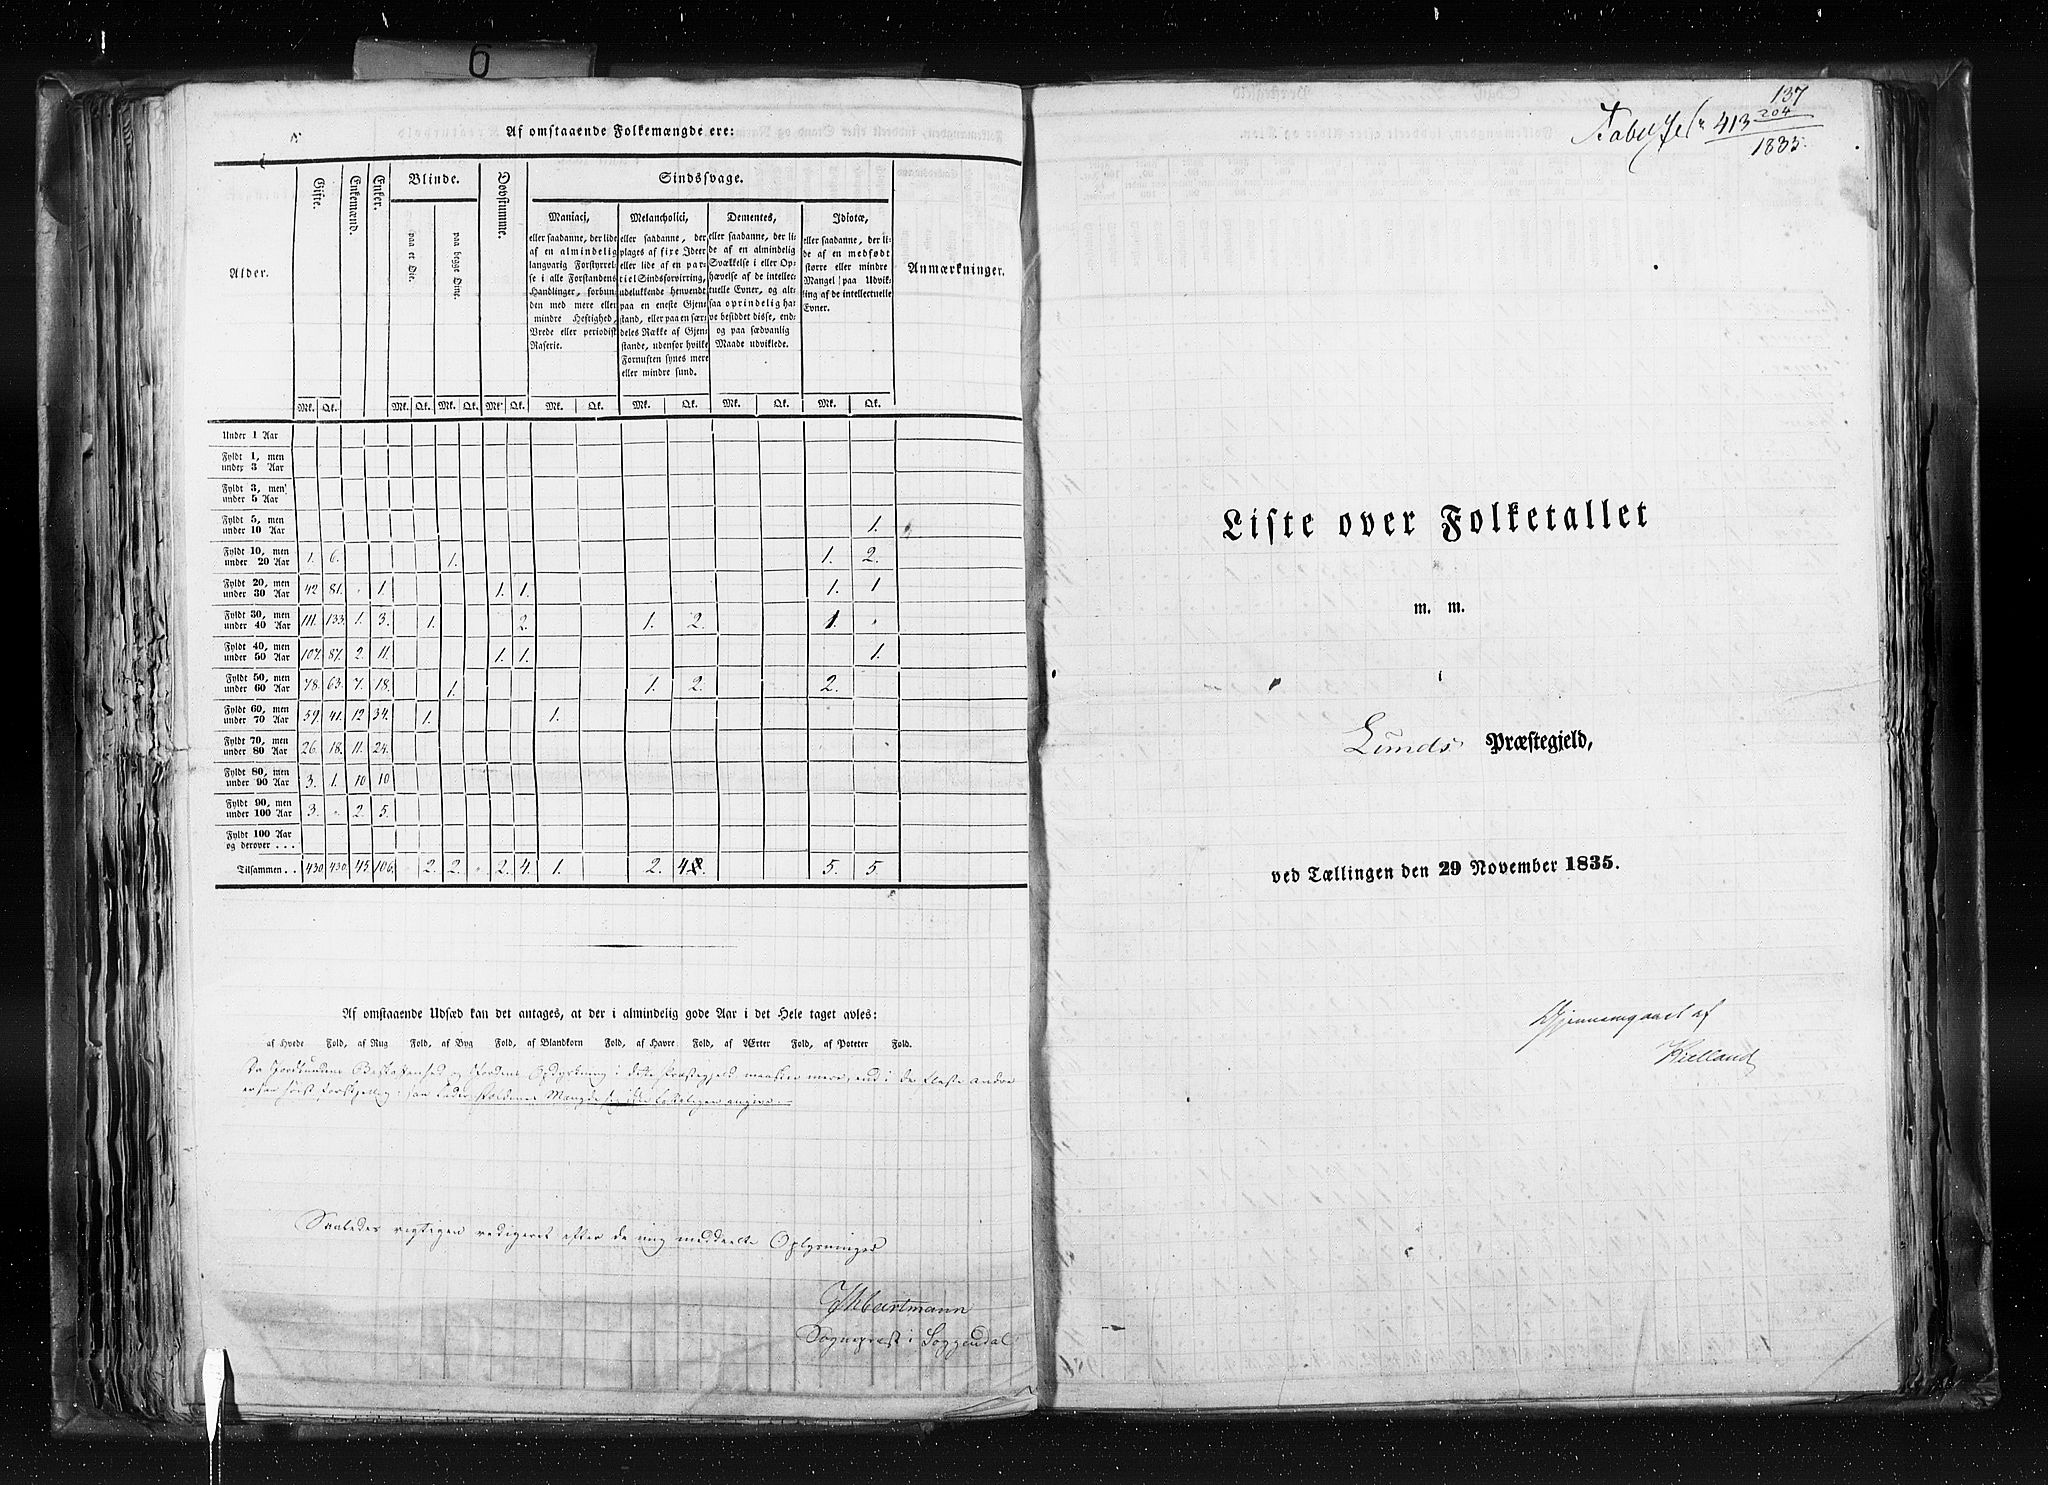 6
Af omstaaende Folkemængde ere:
Alder.
Gifte.
Enkemænd.
Enker.
Blinde.
paa et Øie.
paa begge Øine.
Døvstumme.
Sindssvage.
Maniaci,
eller saadanne, der lide
af en almindelig
langvarig Forstyrrel-
se i alle Forstandens
Handlinger, forbun-
den med mere eller
mindre Heftighed,
Vrede eller periodisk
Raserie.
Melancholici,
eller saadanne, der
plages af fixe Ideer
eller lide af en par-
tiel Sindsforvirring,
udelukkende henvendt
paa en eneste Gjen-
stand, eller paa en sær-
deles Række af Gjen-
stande, udenfor hvilke
Fornuften synes mere
eller mindre sund.
Dementes,
eller saadanne, der li-
de af en almindelig
Svækkelse i eller Op-
hævelse af de intellec-
tuelle Evner, og alt-
saa oprindelig ha-
ve besiddet disse, end-
og paa sædvanlig
Maade udviklede.
Idiotæ,
eller saadanne, der li-
de af en medfødt
større eller mindre
Mangel paa Udvik-
ling af de intellectuelle
Evner.
Anmærkninger.
Mk. Qk. Mk. Qk. Mk. Qk. Mk. Qk. Mk. Qk. Mk. Qk. Mk. Qk. Mk. Qk.
Under 1 Aar
Fyldt 1, men
under 3 Aar
Fyldt 3, men
under 5 Aar
Fyldt 5, men
under 10 Aar 1.
Fyldt 10, men
under 20 Aar 1. 6. 1. 1. 2.
Fyldt 20, men
under 30 Aar 42 81. 1. 1. 1. 1. 1
Fyldt 30, men
under 40 Aar 111. 133. 1. 3. 1. 2. 1. 2. 1.
Fyldt 40, men
under 50 Aar 107. 87. 2. 11. 1. 1. 1.
Fyldt 50, men
under 60 Aar 78. 63. 7. 18. 1. 1. 2. 2.
Fyldt 60, men
under 70 Aar 59. 41. 12 34. 1. 1.
Fyldt 70, men
under 80 Aar 26. 18. 11. 24.
Fyldt 80, men
under 90 Aar 3. 1. 10 10
Fyldt 90, men
under 100 Aar 3. 2. 5.
Fyldt 100 Aar
og derover . . .
Tilsammen . . 430 430. 45 106. 2. 2. 2. 4. 1. 2. 4. 5. 5.
Af omstaaende Udsæd kan det antages, at der i almindelig gode Aar i det Hele taget avles:
af Hvede Fold, af Rug Fold, af Byg Fold, af Blandkorn Fold, af Havre Fold, af Ærter Fold, af Poteter Fold.
Da Jordbundens Beskaffenhed og Jordens Opdyrkning i dette Præstegjeld maaskee mere, end i de fleste andre
er saa høist forskjellig, saa lader Foldenes Mængde sig ikke paalideligen angive.
Saaledes rigtigen redigeret efter de mig meddeelte Oplysninger
Hartmann
Sognepræst i Soggendal
137
413 204
1835.
Liste over Folketallet
m. m.
i
Lunds Præstegjeld,
ved Tællingen den 29 November 1835.
Gjennemgaaet af
Kielland